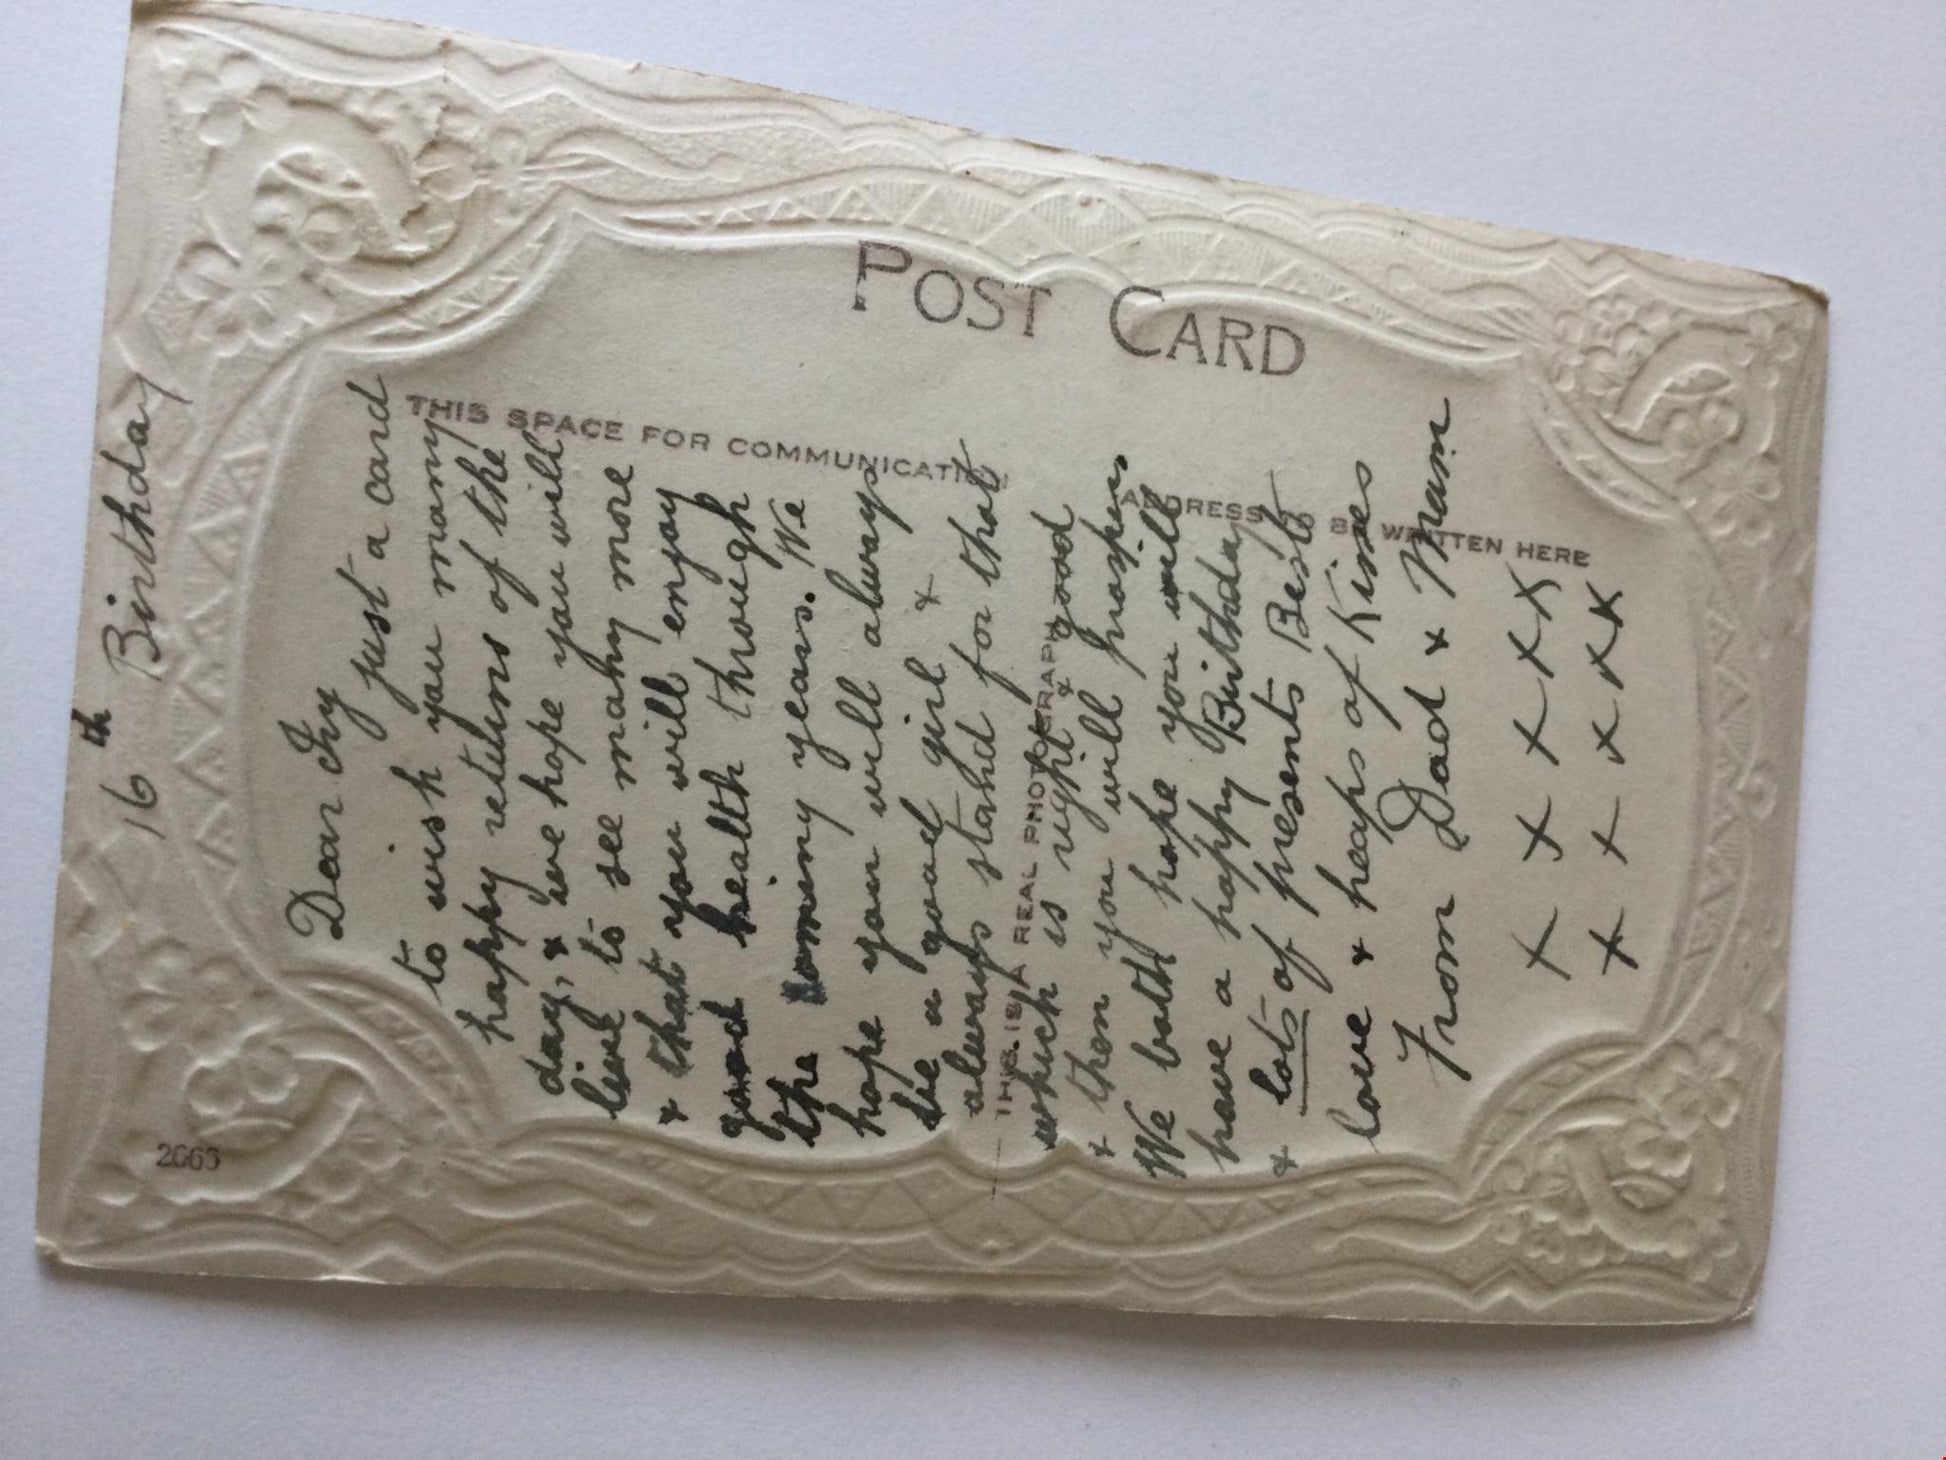 16th Birthday
2665
POST CARD
THIS SPACE FOR COMMUNICATION
ADDRESS TO BE WRITTEN HERE
THIS IS A REAL PHOTOGRAPH
Dear Ivy
just a card
to wish you many
happy returns of the
day, & we hope you will
live to see many more
& that you will enjoy
good health through
the coming years. We
hope you will always
be a good girl &
always stand for that
which is right & good
& then you will prosper
We both hope you will
have a happy Birthday
& lots of presents Best
love & heaps of Kisses
From Dad & Mam
X X X X X
X X X X X